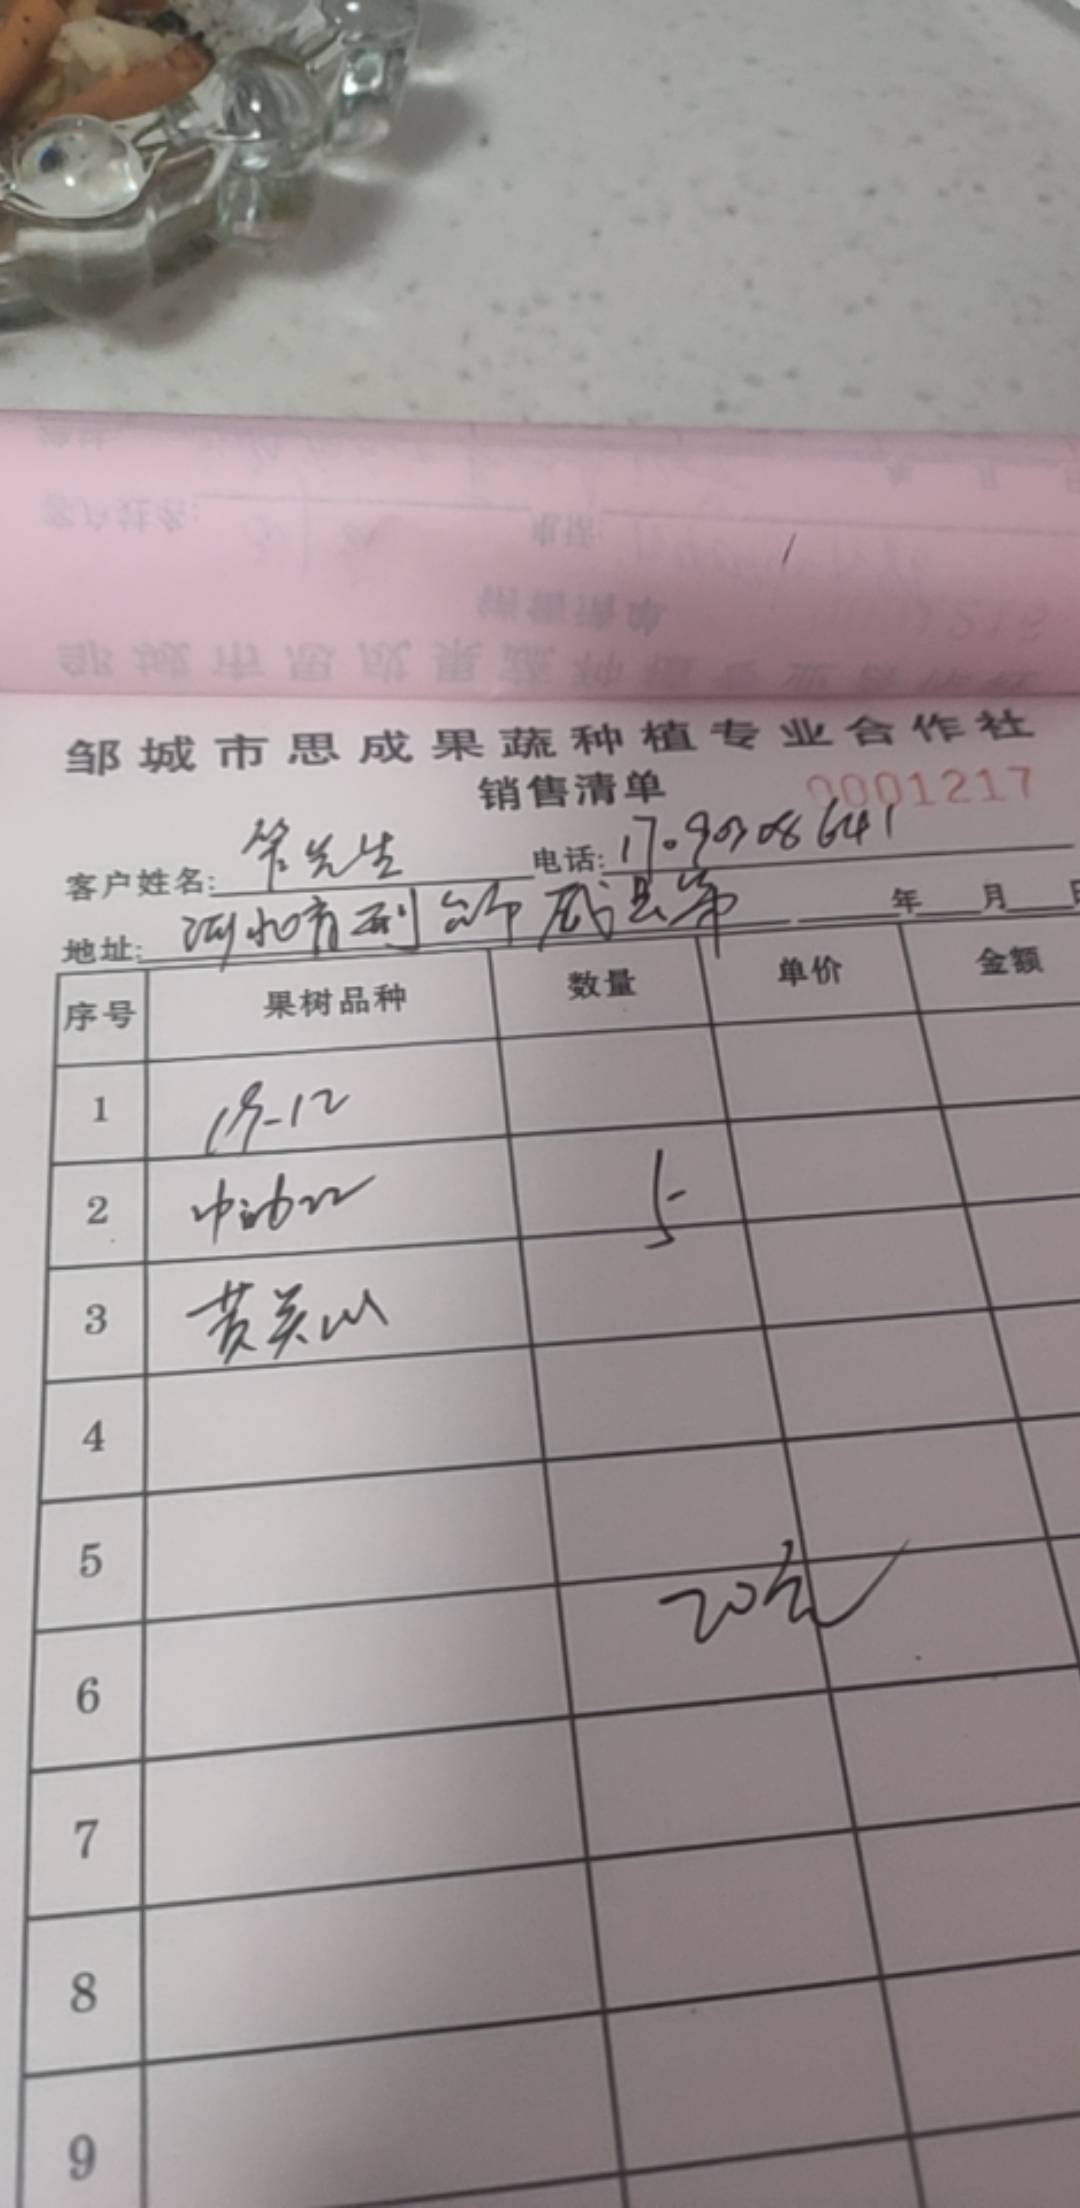 邹城市思成果蔬种植专业合作社
销售清单 0001217
客户姓名: 管先生 电话: 17090308641
地址: 河北省邢台市威县第 年 月 日
序号 果树品种 数量 单价 金额
1 18-12
2 中油22 5
3 黄关山
4
5
20元
6
7
8
9